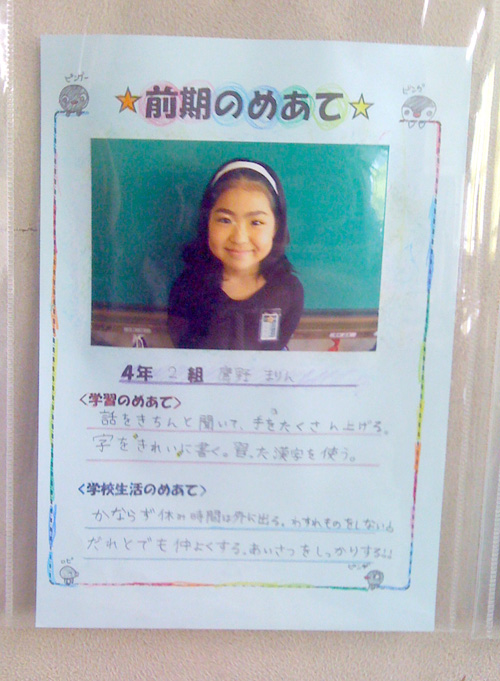 ピンガー
ピングー
☆前期のめあて☆
4年 2 組 鷹野 まりん
<学習のめあて>
話をきちんと聞いて、手をたくさん上げる。
字をきれいに書く。習った漢字を使う。
<学校生活のめあて>
かならず休み時間は外に出る。わすれものをしない。
だれとでも仲よくする。あいさつをしっかりする。